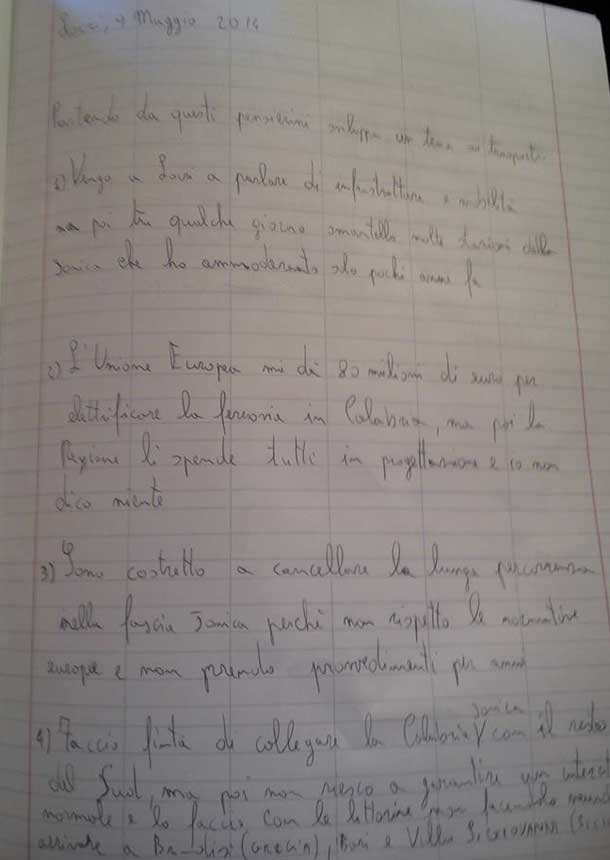 Locri, 9 Maggio 2014
Partendo da questi pensierini sviluppa un tema sui trasporti.
1) Vengo a Locri a parlare di infrastrutture e mobilità
ma poi tra qualche giorno smantello molte stazioni della
Jonica che ho ammodernato solo pochi anni fa
2) L'Unione Europea mi dà 80 milioni di euro per
elettrificare la ferrovia in Calabria, ma poi la
Regione li spende tutti in progettazione e io non
dico niente
3) Sono costretto a cancellare la lunga percorrenza
nella fascia Jonica perché non rispetto le normative
europee e non prendo provvedimenti per anni
4) Faccio finta di collegare la Calabria jonica con il resto
del Sud, ma poi non riesco a garantire un
normale e lo faccio con le littorine non facendole
arrivare a Brindisi, Bari e Villa S. Giovanni